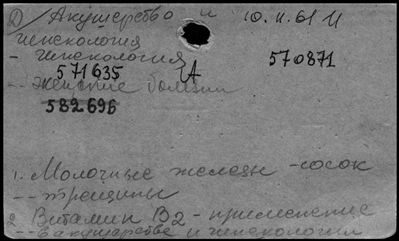 D) Акушерство и 10.II.61 И
гинекология
- Гинекология 570871
571635 A
-- женские болезни
582696
1. Молочные железы - сосок
-- трещины
2. Витамин B2 - применение
-- в акушерстве и гинекологии